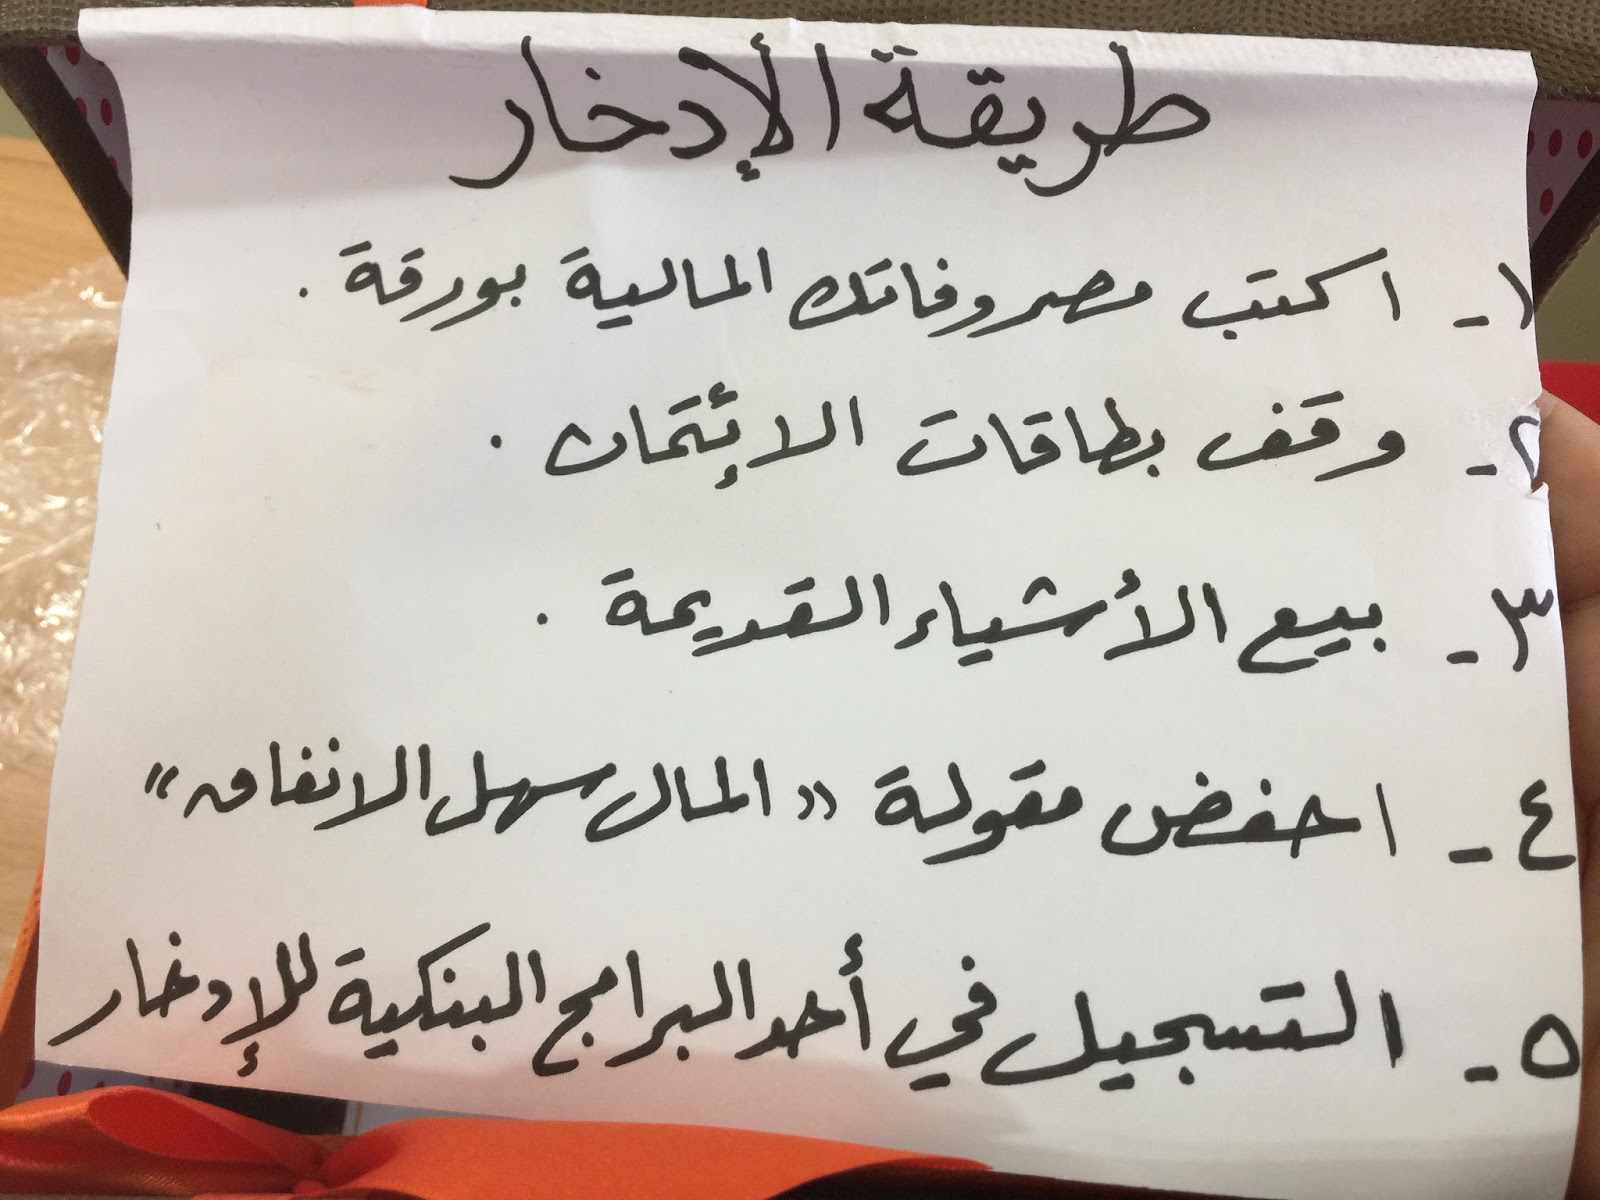 طريقة الإدخار
١- اكتب مصروفاتك المالية بورقة .
٢- وقف بطاقات الإئتمان .
٣- بيع الأشياء القديمة .
٤- احفض مقولة « المال سهل الانفاق »
٥- التسجيل في أحد البرامج البنكية للإدخار